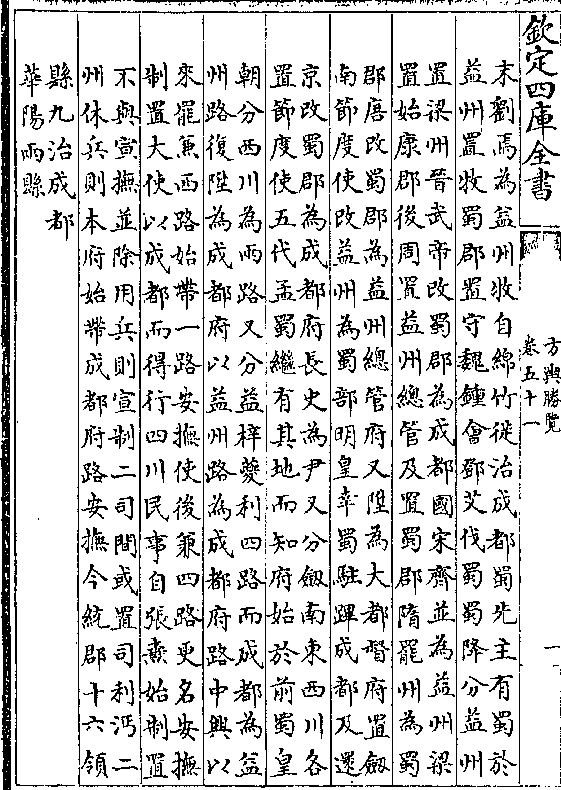 欽定四庫全書
方輿勝覽
卷五十一
一
末劉焉為益州牧自綿竹徙治成都蜀先主有蜀於
益州置牧蜀郡置守魏鍾會鄧艾伐蜀蜀降分益州
置梁州晉武帝改蜀郡為成都國宋齊並為益州梁
置始康郡後周置益州總管及置蜀郡隋罷州為蜀
郡唐改蜀郡為益州總管府又陞為大都督府置劔
南節度使改益州為蜀部明皇幸蜀駐蹕成都及還
京改蜀郡為成都府長史為尹又分劔南東西川各
置節度使五代孟蜀繼有其地而知府始於前蜀皇
朝分西川為兩路又分益梓夔利四路而成都為益
州路復陞為成都府以益州路為成都府路中興以
來罷兼西路始帶一路安撫使後兼四路更名安撫
制置大使以成都而得行四川民事自張燾始制置
不與宣撫並除用兵則宣制二司間或置司利沔二
州休兵則本府始帶成都府路安撫今統郡十六領
縣九治成都
華陽兩縣